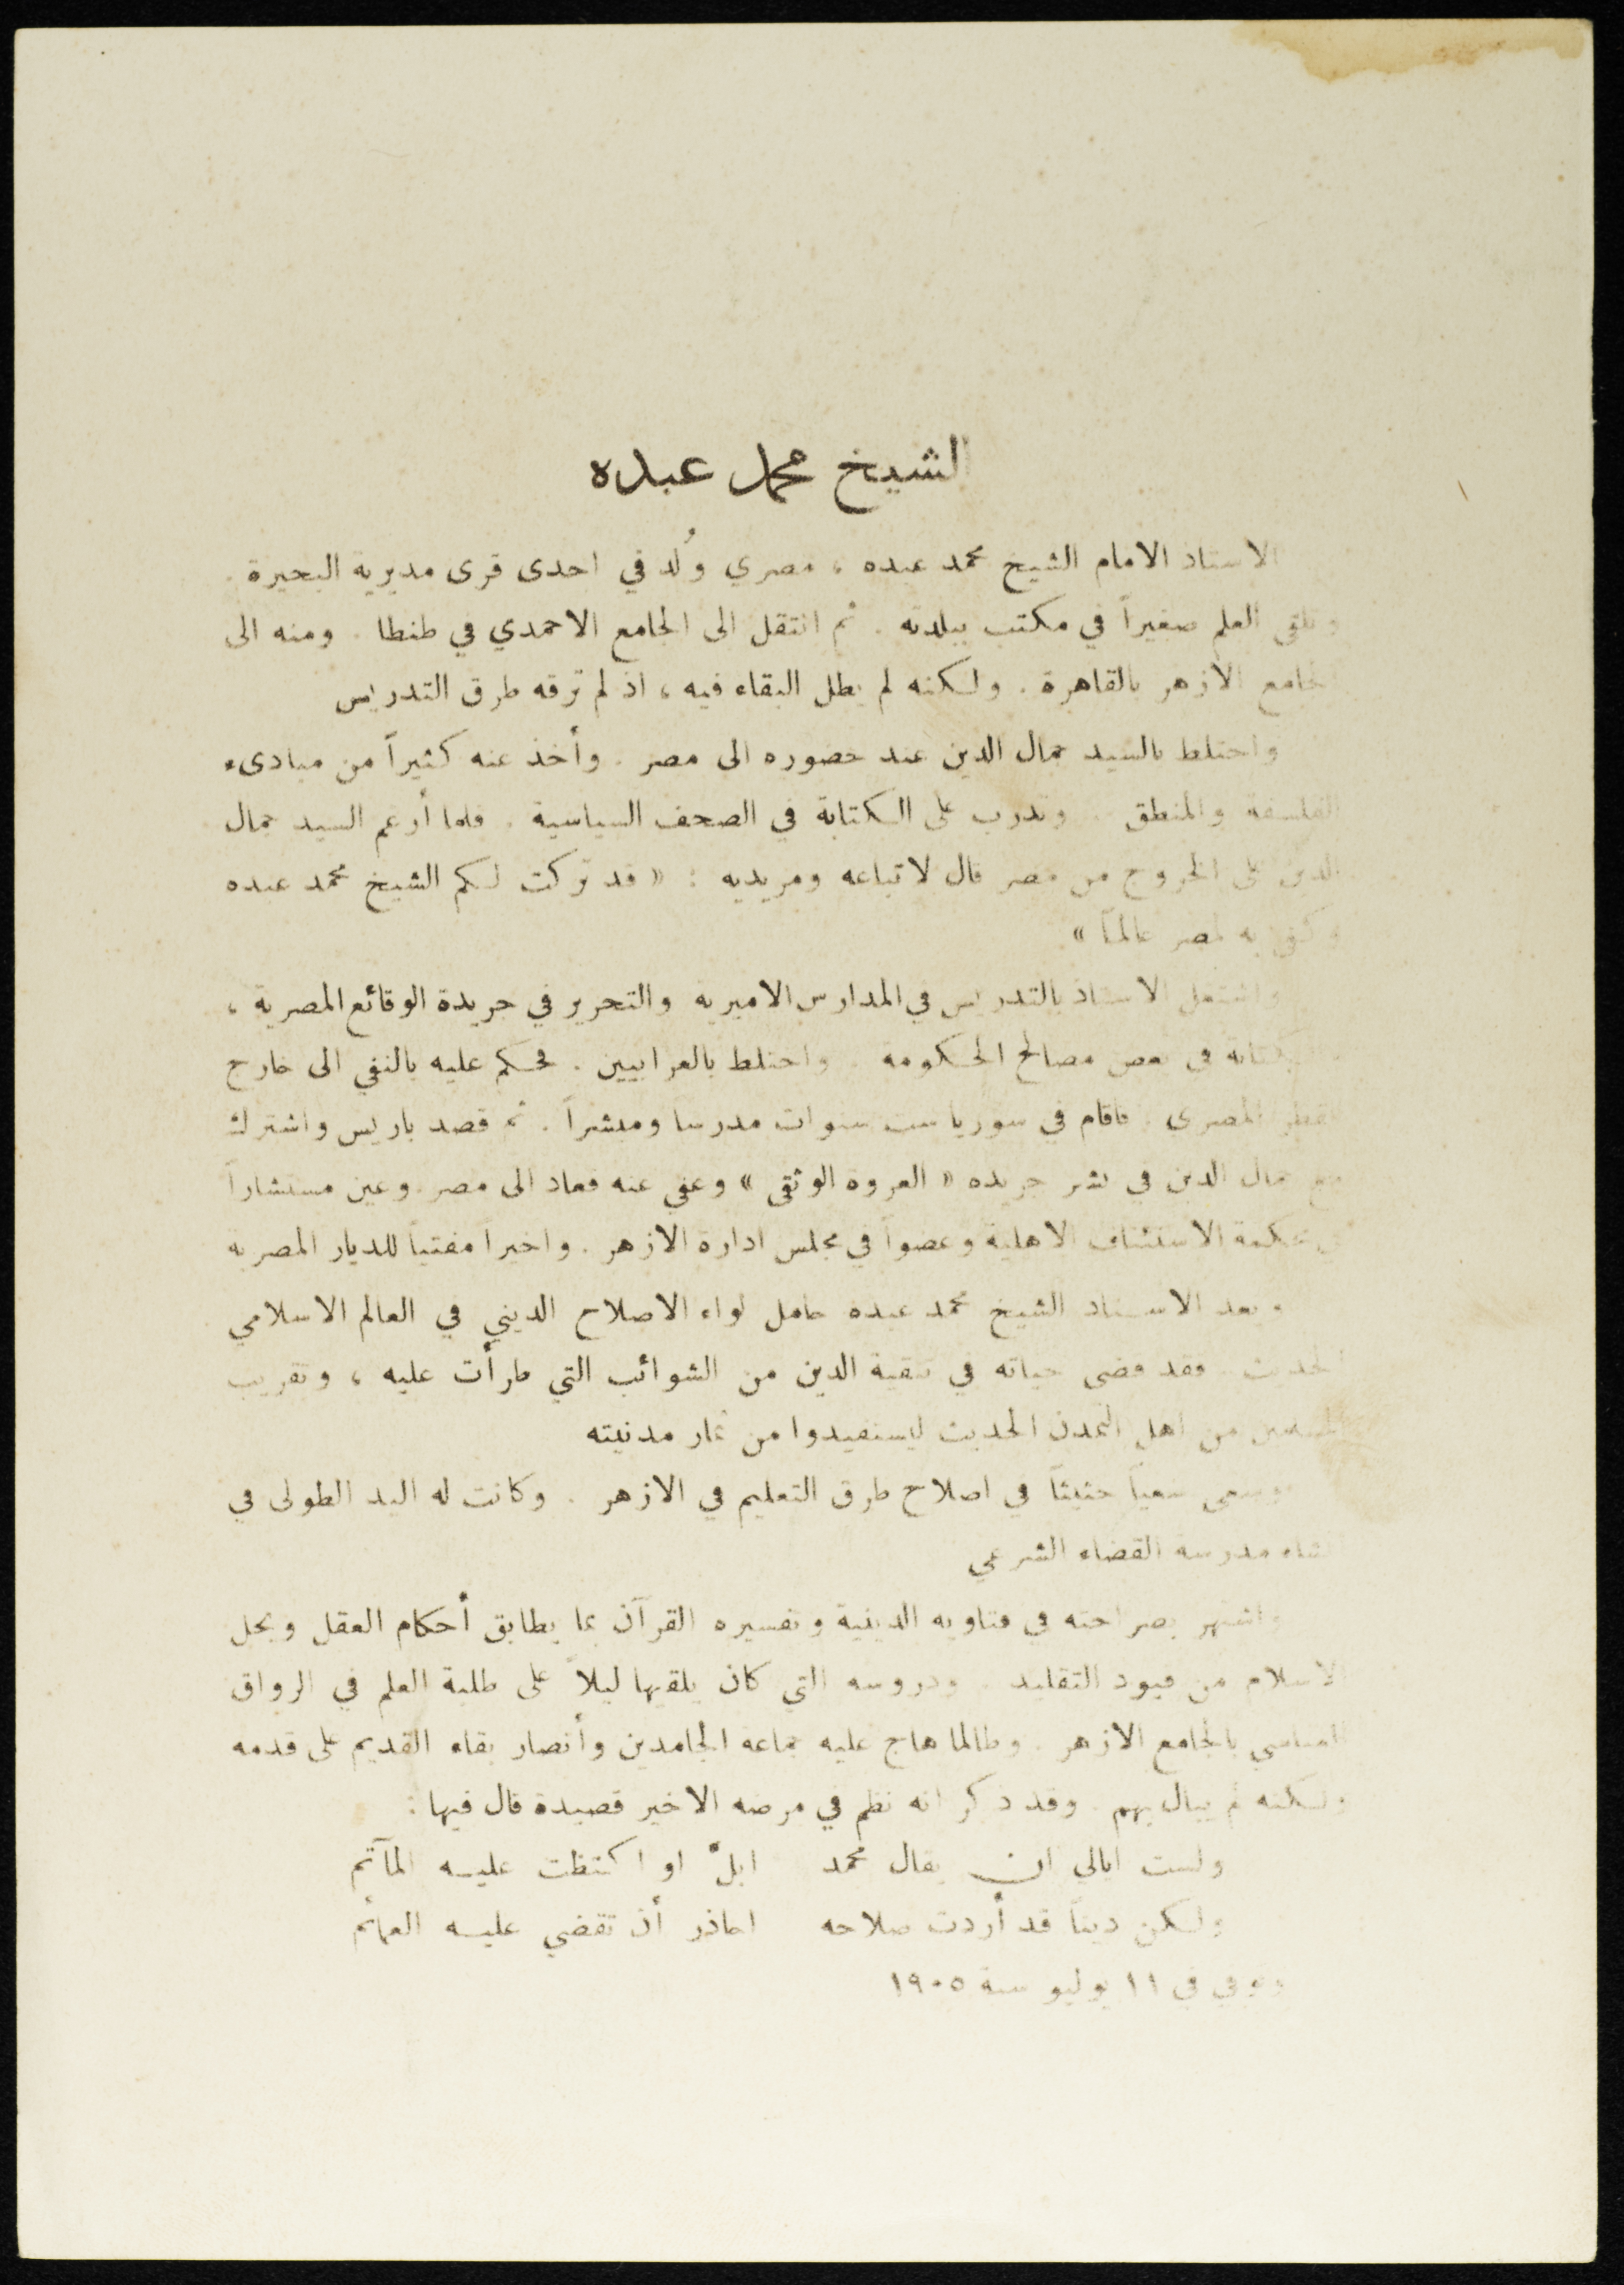 الشيخ محمد عبده
الاستاذ الامام الشيخ محمد عبده ، مصري وُلد في احدى قرى مديرية البحيرة .
وتلقى العلم صغيراً في مكتب ببلدته . ثم انتقل الى الجامع الاحمدي في طنطا . ومنه الى
الجامع الازهر بالقاهرة . ولكنه لم يطل البقاء فيه ، اذ لم ترقه طرق التدريس
واختلط بالسيد جمال الدين عند حضوره الى مصر . وأخذ عنه كثيراً من مبادىء
الفلسفة والمنطق . وتدرب على الكتابة في الصحف السياسية . فلما أرغم السيد جمال
الدين على الخروج من مصر قال لاتباعه ومريديه : « قد تركت لكم الشيخ محمد عبده
وكفى به لمصر عالماً »
واشتغل الاستاذ بالتدريس في المدارس الاميرية والتحرير في جريدة الوقائع المصرية ،
والكتابة في بعض مصالح الحكومة . واختلط بالعرابيين . فحكم عليه بالنفي الى خارج
القطر المصري . فاقام في سوريا ست سنوات مدرسا ومنشراً . ثم قصد باريس واشترك
مع جمال الدين في نشر جريدة « العروة الوثقى » وعفي عنه فعاد الى مصر . وعين مستشاراً
في محكمة الاستئناف الاهلية وعضواً في مجلس ادارة الازهر . واخيراً مفتياً للديار المصرية
ويعد الاستاذ الشيخ محمد عبده حامل لواء الاصلاح الديني في العالم الاسلامي
الحديث . فقد قضى حياته في تنقية الدين من الشوائب التي طرأت عليه ، وتقريب
المسلمين من اهل التمدن الحديث ليستفيدوا من ثمار مدنيته
وسعى سعياً حثيثاً في اصلاح طرق التعليم في الازهر . وكانت له اليد الطولى في
انشاء مدرسة القضاء الشرعي
واشتهر بصراحته في فتاويه الدينية وتفسيره القرآن بما يطابق أحكام العقل ويحل
الاسلام من قيود التقليد . ودروسه التي كان يلقيها ليلاً على طلبة العلم في الرواق
العباسي بالجامع الازهر . وطالما هاج عليه جماعة الجامدين وأنصار بقاء القديم على قدمه
ولكنه لم يبال بهم . وقد ذكر انه نظم في مرضه الاخير قصيدة قال فيها :
ولست ابالي ان يقال محمد ابلّ او اكتظت عليه المآتم
ولكن ديناً قد أردت صلاحه احاذر أن تقضي عليه العمائم
وتوفي في ١١ يوليو سنة ١٩٠٥